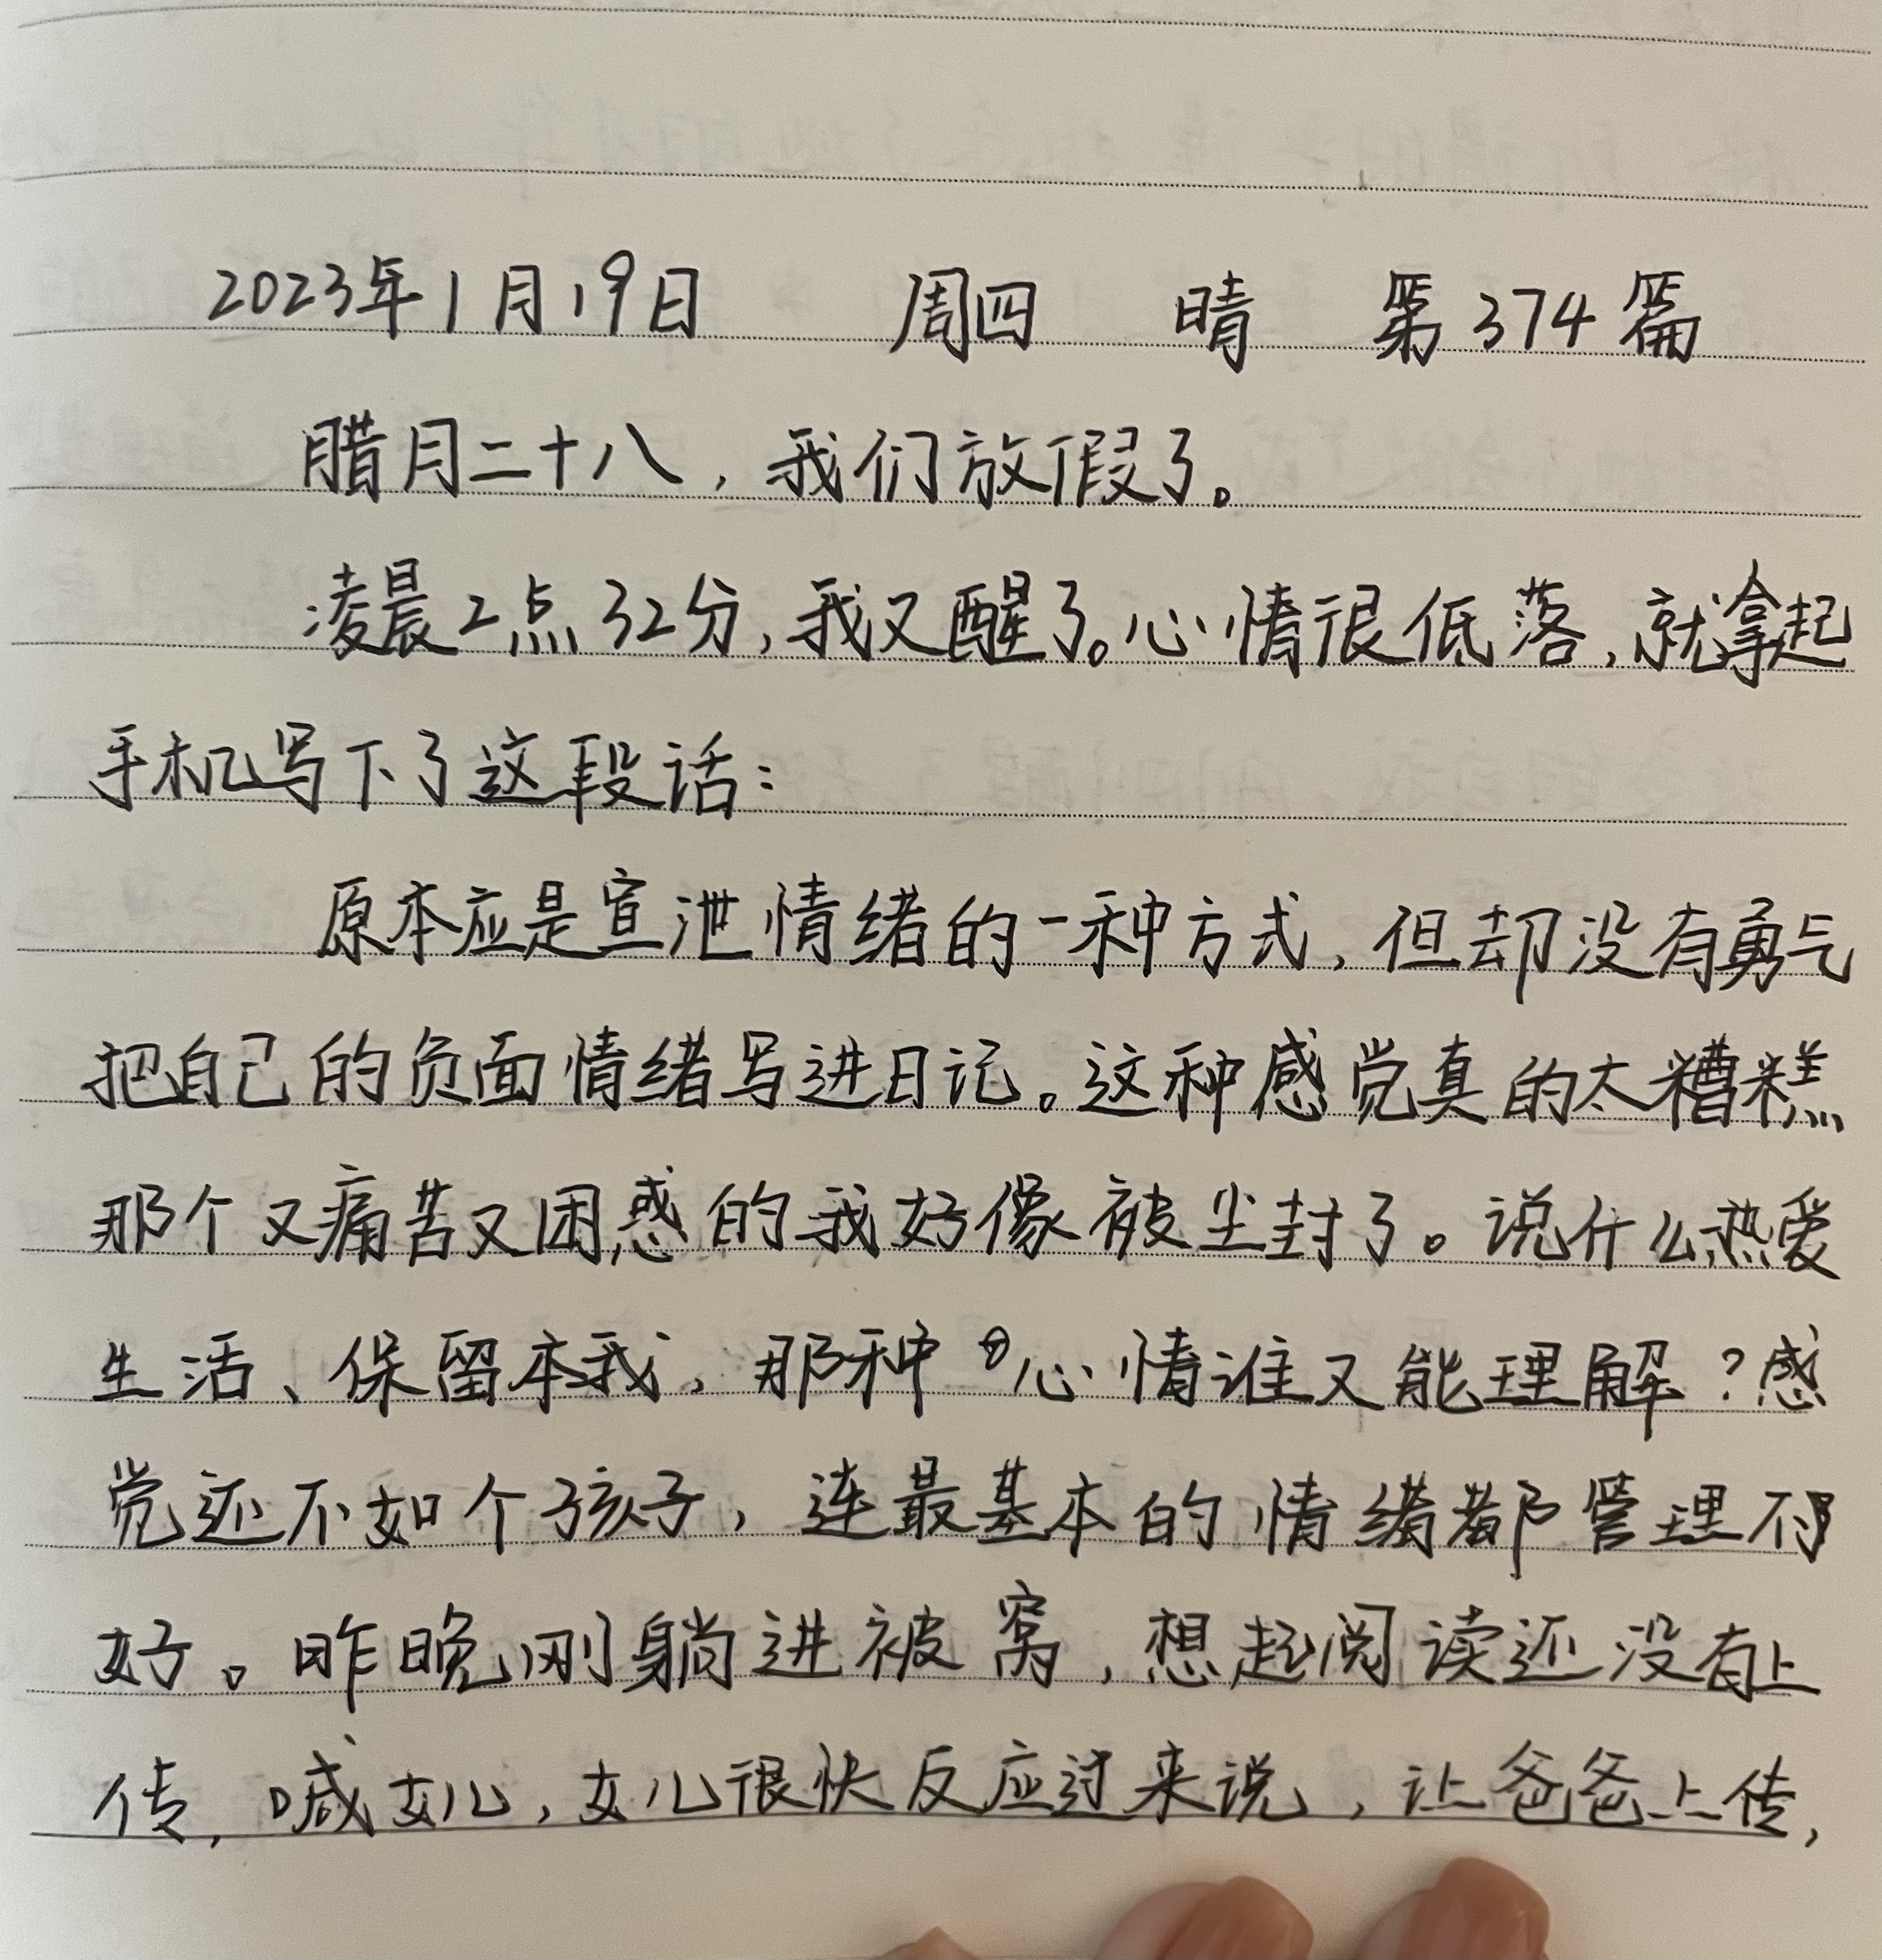 2023年1月19日 周四 晴 第374篇
腊月二十八，我们放假了。
凌晨2点32分，我又醒了。心情很低落，就拿起
手机写下了这段话：
原本应是宣泄情绪的一种方式，但却没有勇气
把自己的负面情绪写进日记。这种感觉真的太糟糕
那个又痛苦又困惑的我好像被尘封了。说什么热爱
生活、保留本我，那种心情谁又能理解？感
觉还不如个孩子，连最基本的情绪都管理不
好。昨晚刚躺进被窝，想起阅读还没有上
传，喊女儿，女儿很快反应过来说，让爸爸上传，